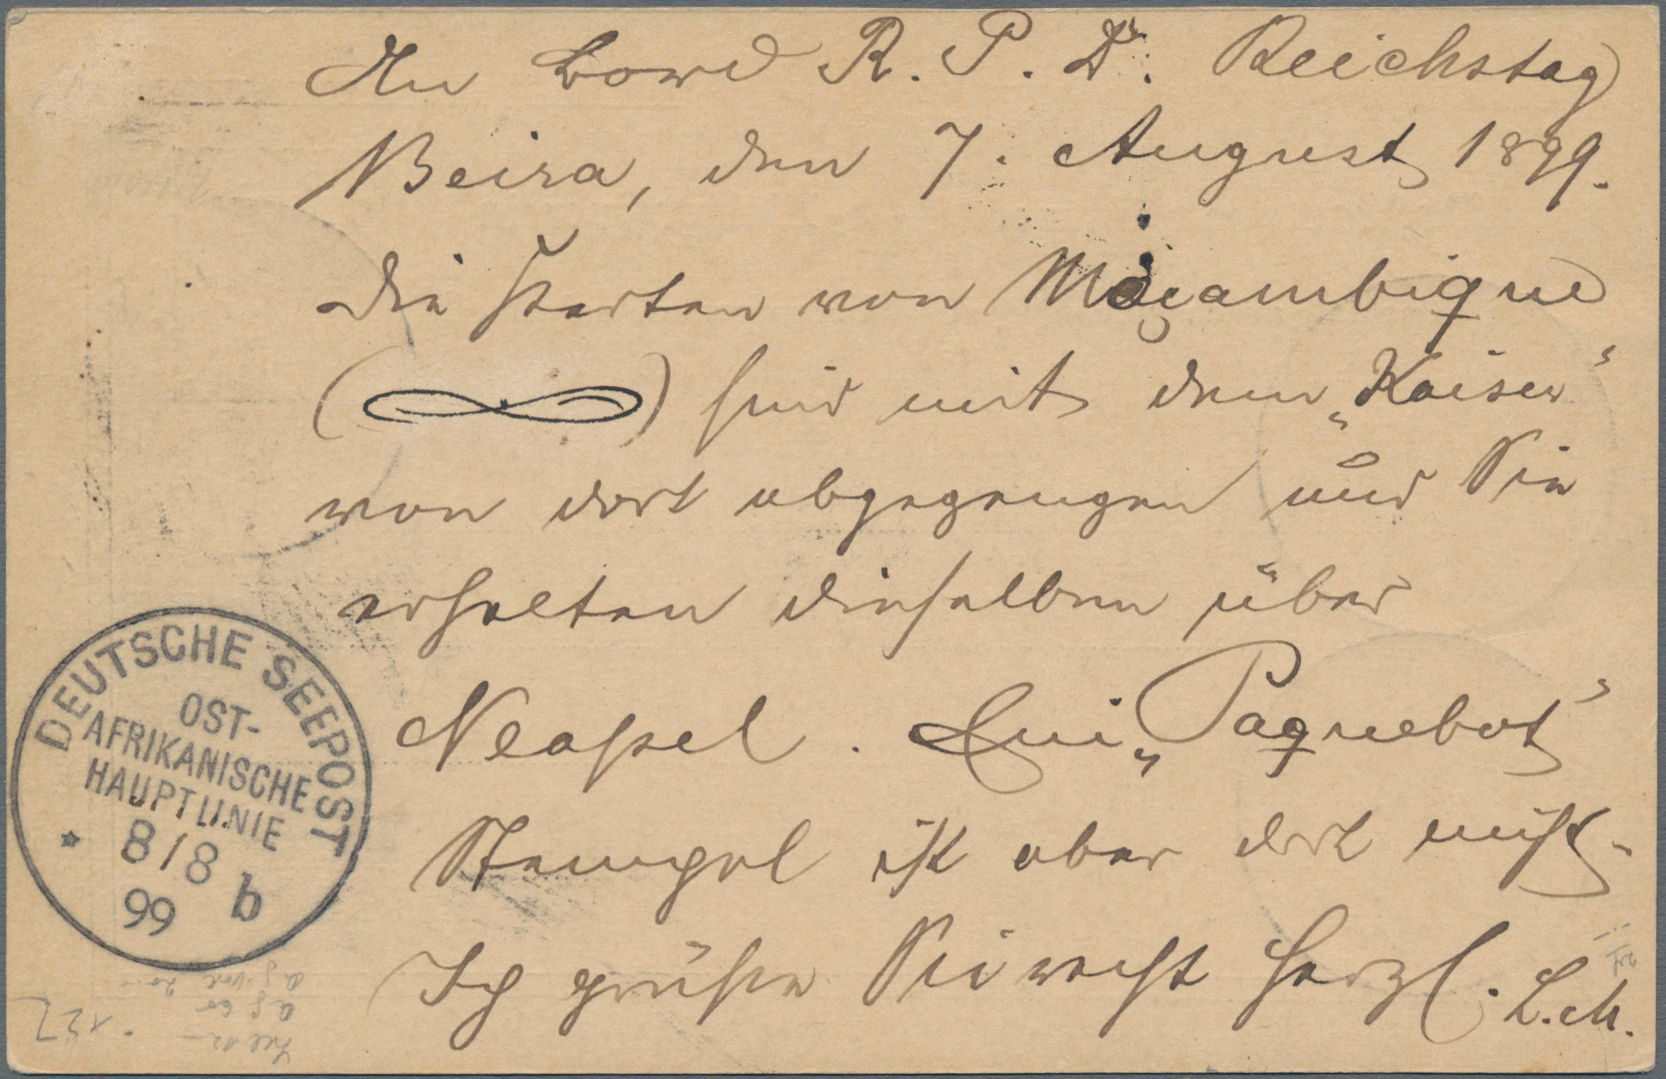 An Bord R. P. D. Reichstag
Beira, den 7. August 1899.
Die Karten von Moçambique
( ) sind mit dem „Kaiser“
von dort abgegangen und Sie
erhalten dieselben über
Neapel. Ein „Paquebot“
Stempel ist aber dort nicht.
Ich grüße Sie recht herzl. L. M.
DEUTSCHE SEEPOST
OST-
AFRIKANISCHE
HAUPTLINIE
* 8/8 b
99